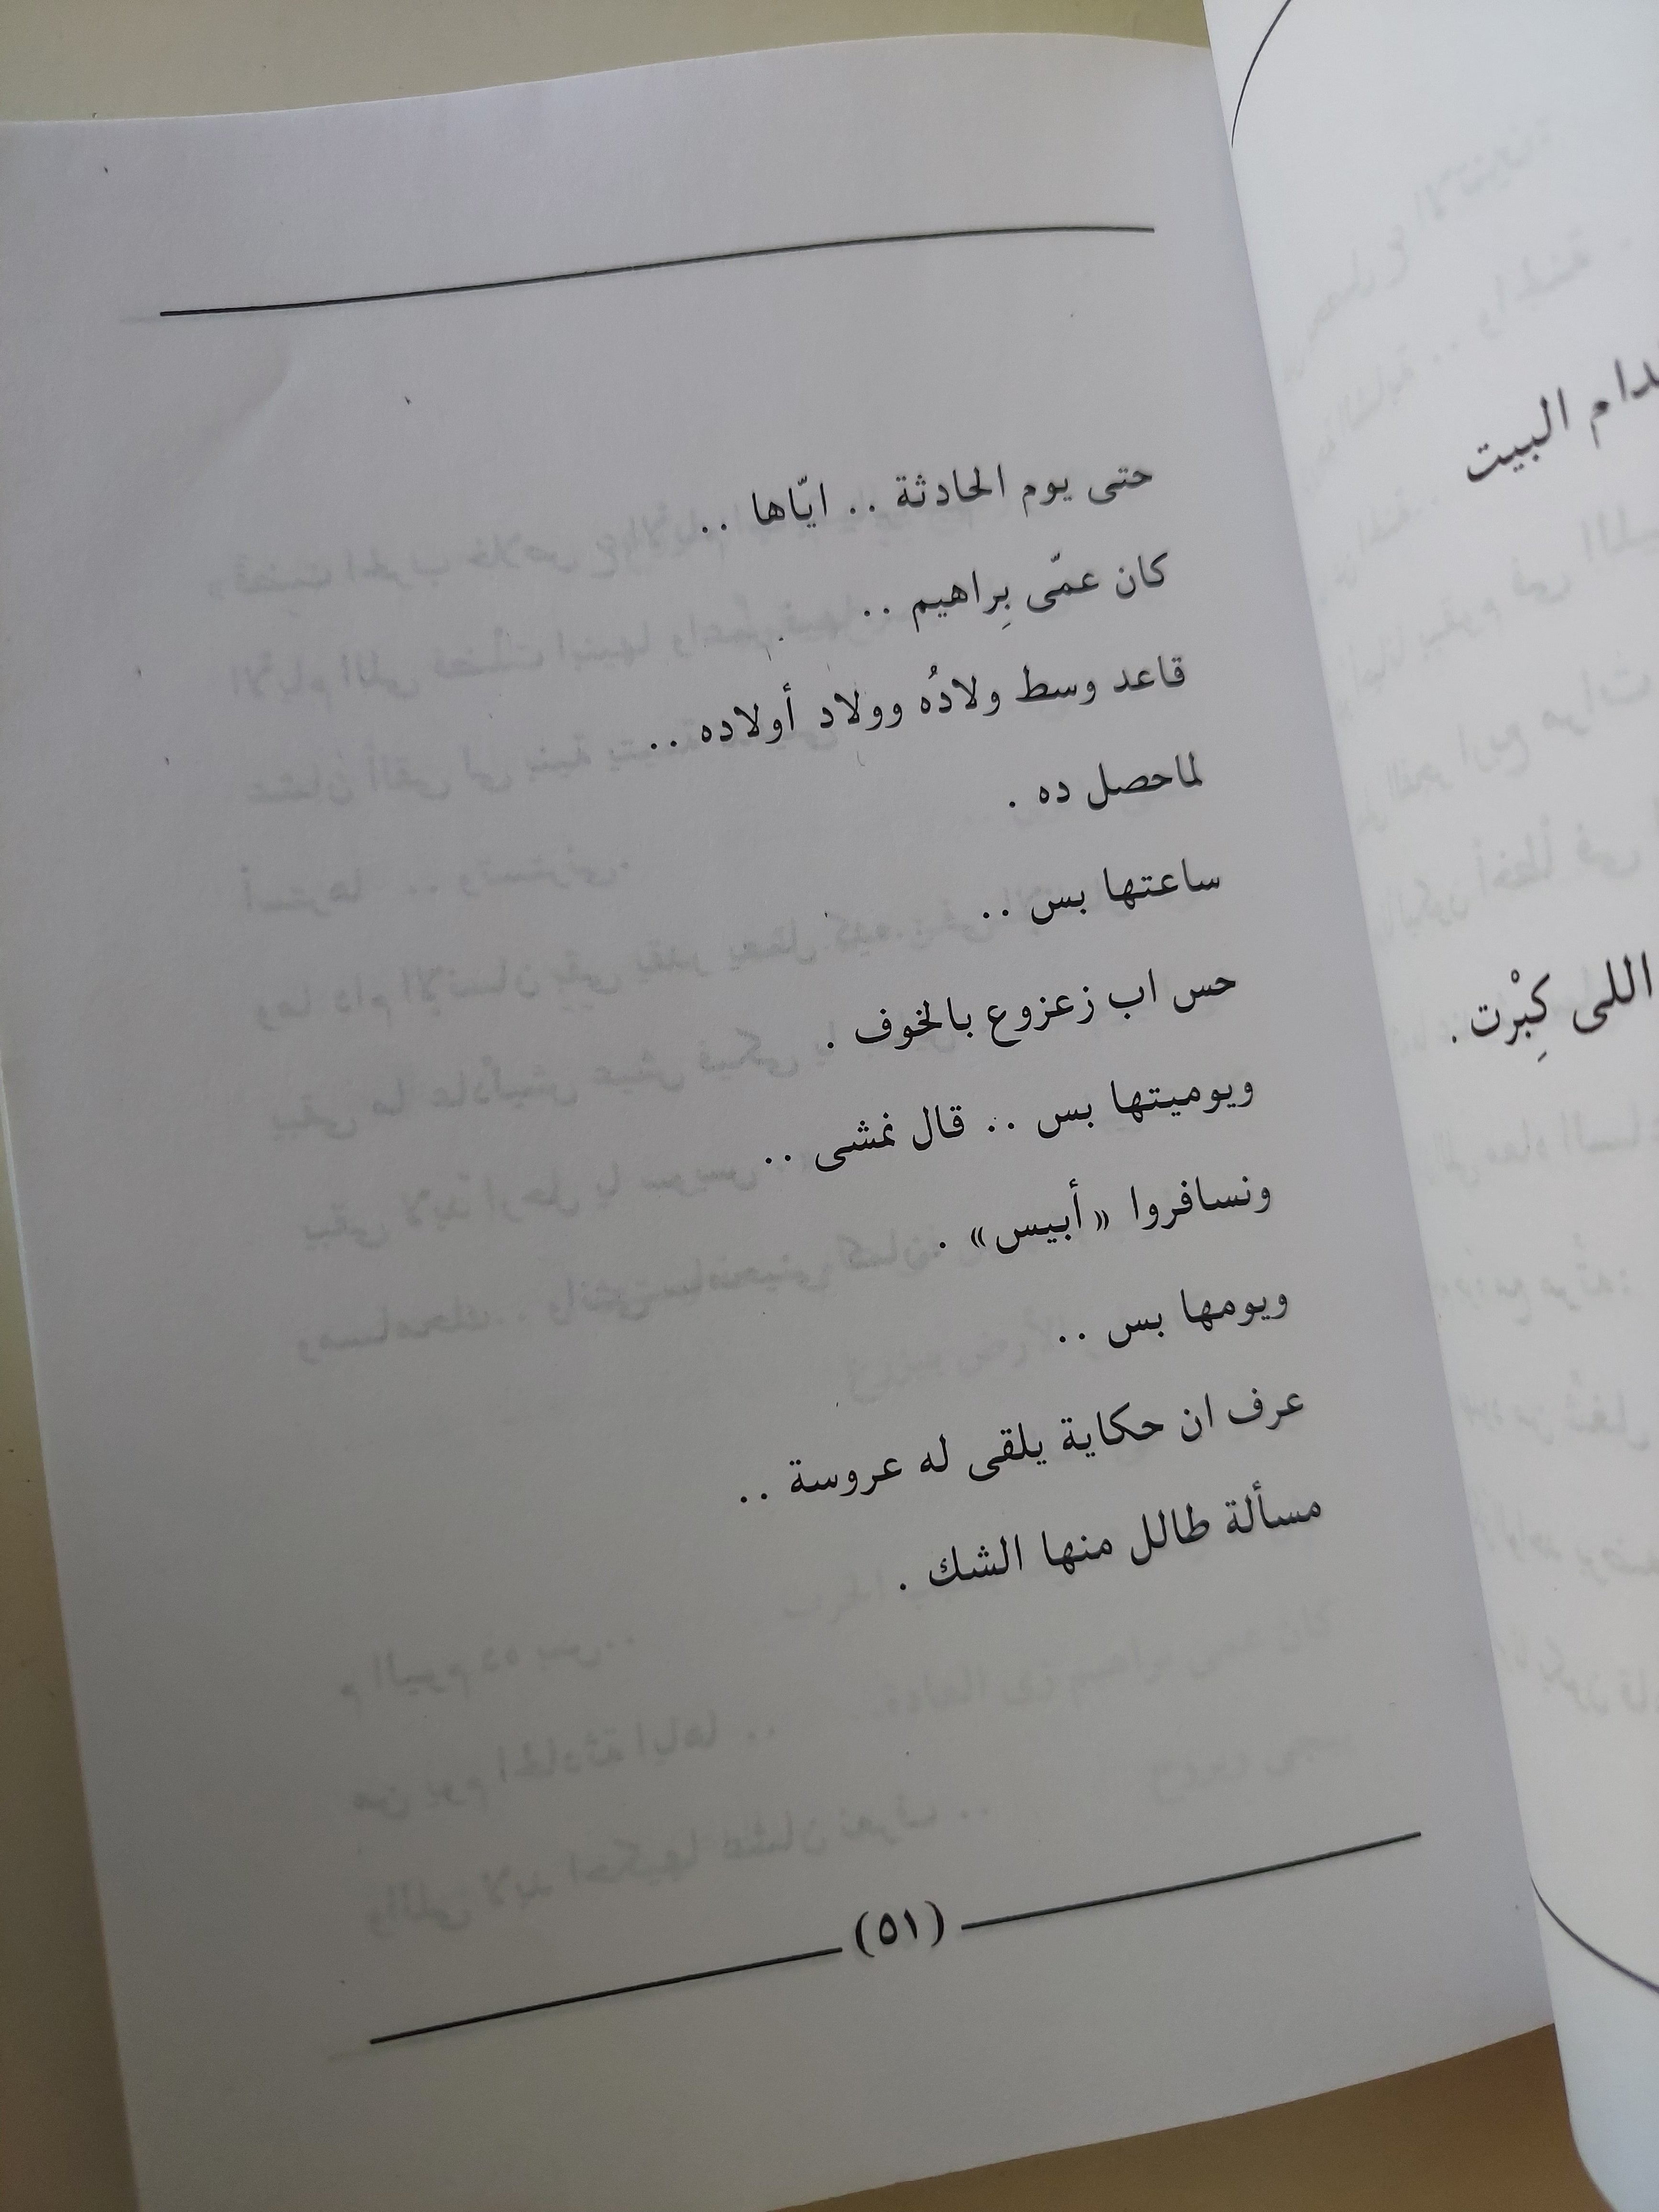 حتى يوم الحادثة .. ايّاها ..
كان عمّى بِراهيم ..
قاعد وسط ولادُه وولاد أولاده ..
لماحصل ده .
ساعتها بس ..
حس اب زعزوع بالخوف .
ويوميتها بس .. قال نمشى ..
ونسافروا «أبيس» .
ويومها بس ..
عرف ان حكاية يلقى له عروسة ..
مسألة طالل منها الشك .
(٥١)
البيت
اللى كِبْرت .